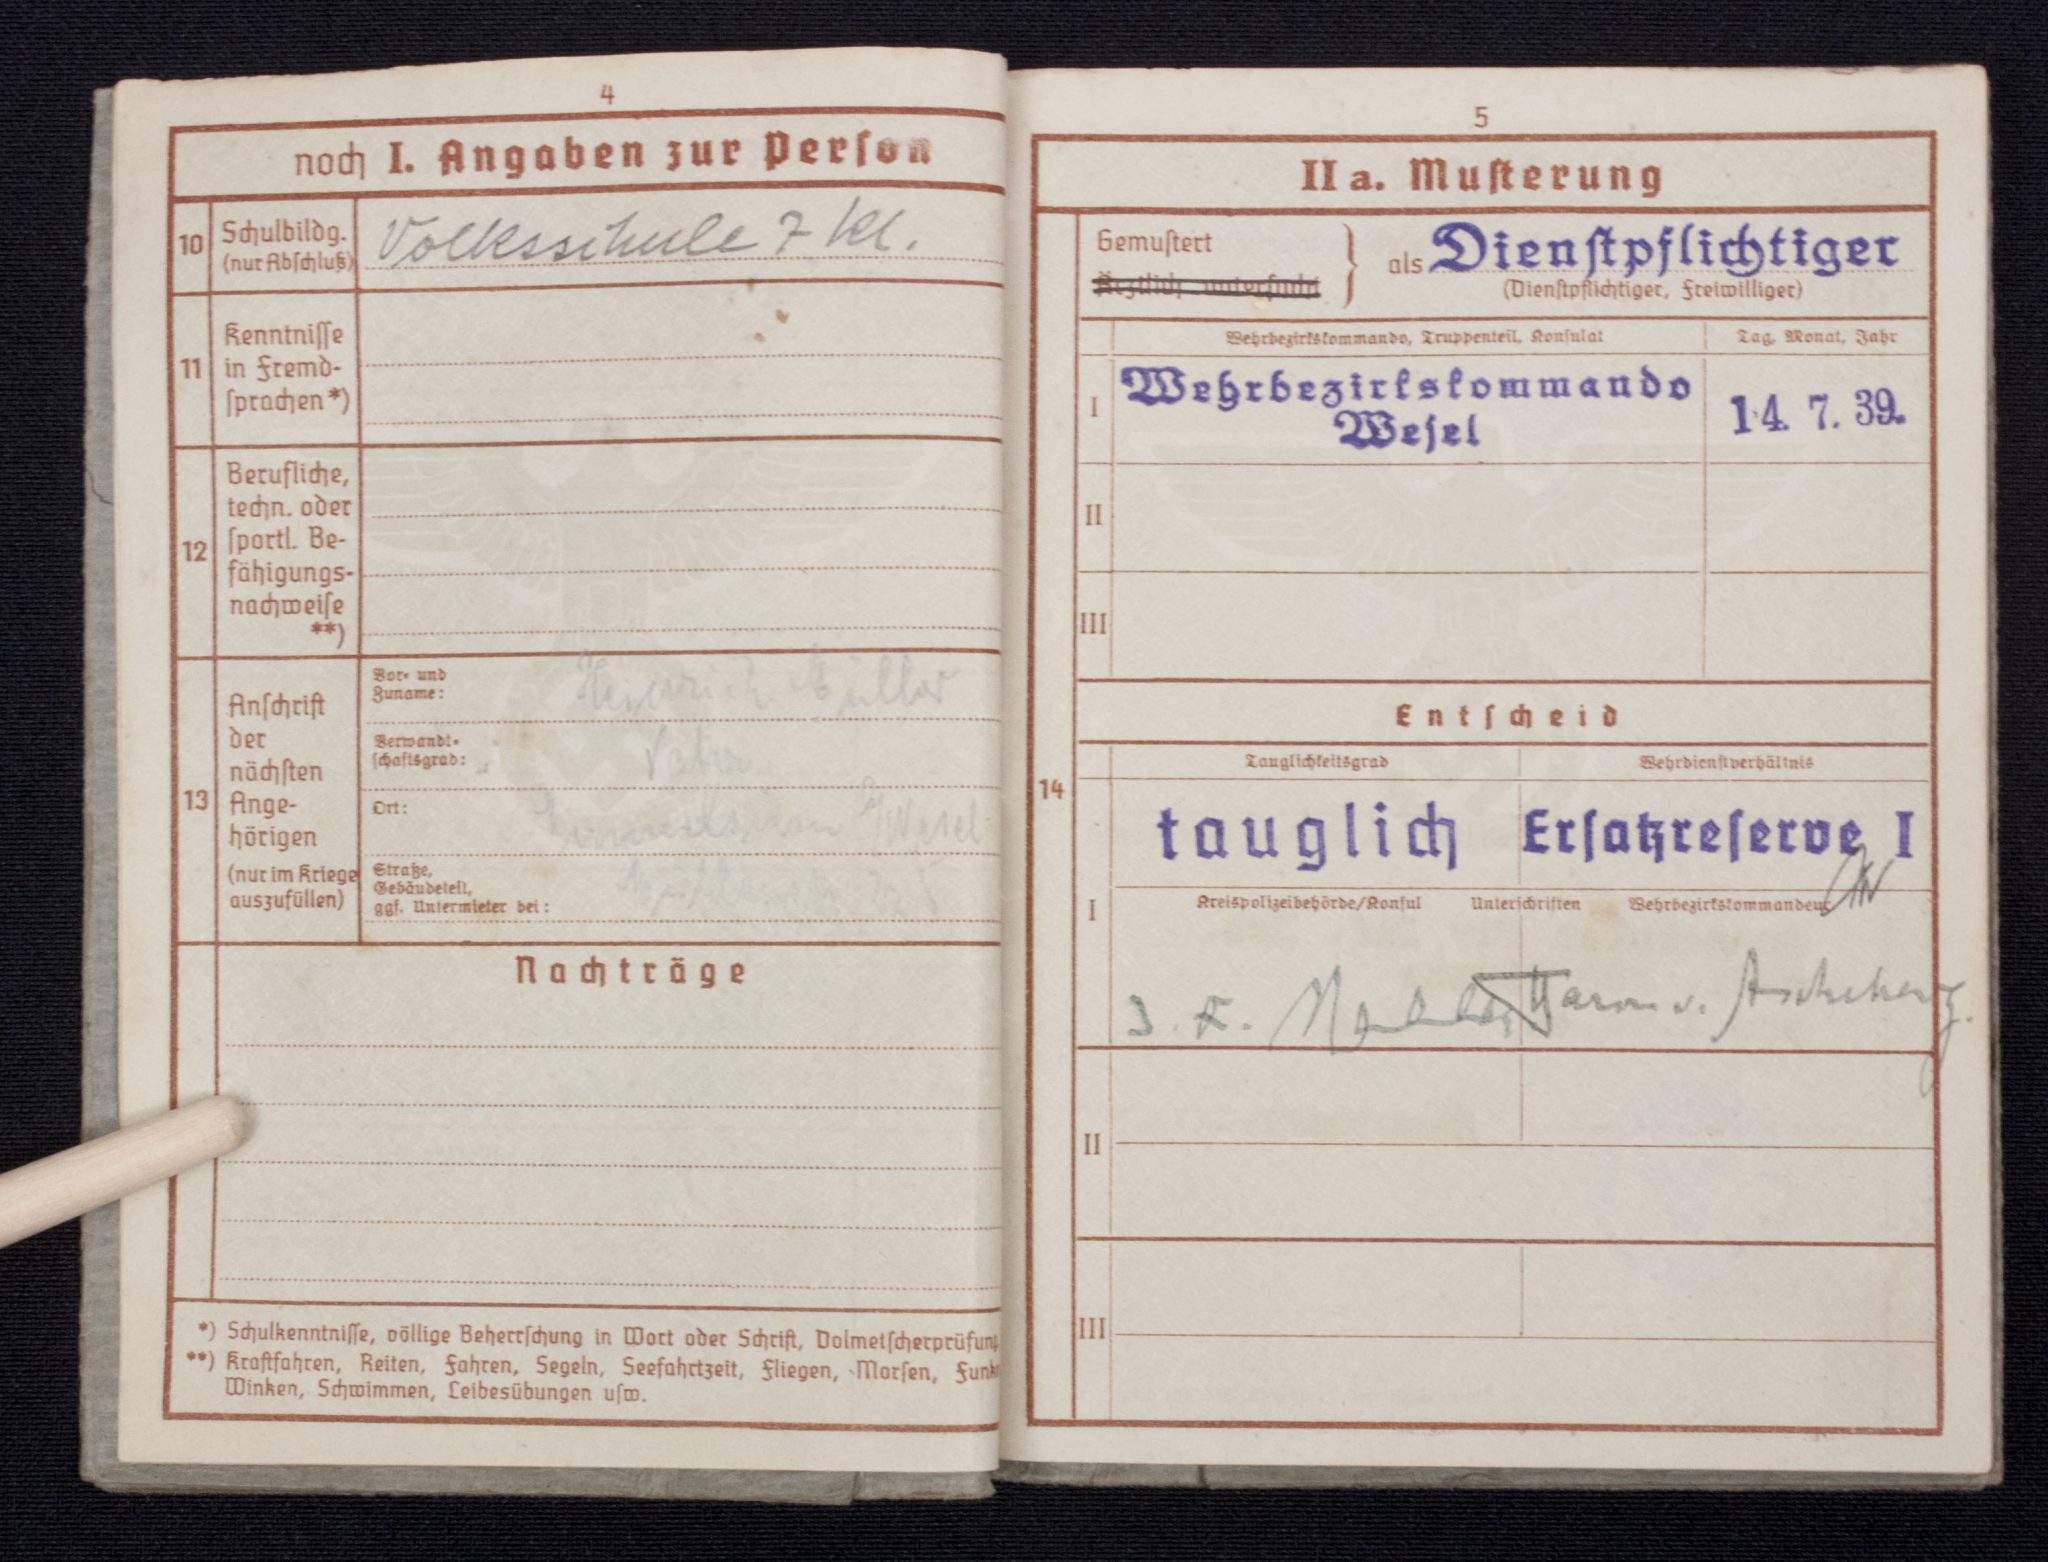 4
noch I. Angaben zur Person
10
Schulbildg.
(nur Abschluß)
Volksschule 7 Kl.
11
Kenntnisse
in Fremd-
sprachen *)
12
Berufliche,
techn. oder
sportl. Be-
fähigungs-
nachweise
**)
13
Anschrift
der
nächsten
Ange-
hörigen
(nur im Kriege
auszufüllen)
Vor- und
Zuname:
Heinrich Müller
Verwandt-
schaftsgrad:
Vater
Ort:
Wesel
Straße,
Gebäudeteil,
ggf. Untermieter bei:
Nachträge
*) Schulkenntnisse, völlige Beherrschung in Wort oder Schrift, Dolmetscherprüfung
**) Kraftfahren, Reiten, Fahren, Segeln, Seefahrtzeit, Fliegen, Morsen, Funk
Winken, Schwimmen, Leibesübungen usw.
5
II a. Musterung
Gemustert
Ärztlich untersucht
als Dienstpflichtiger
(Dienstpflichtiger, Freiwilliger)
Wehrbezirkskommando, Truppenteil, Konsulat
Tag, Monat, Jahr
I
Wehrbezirkskommando
Wesel
14. 7. 39.
II
III
Entscheid
14
Tauglichkeitsgrad
Wehrdienstverhältnis
tauglich
Ersatzreserve I
I
Kreispolizeibehörde/Konsul Unterschriften Wehrbezirkskommandeur
Baron v.
II
III